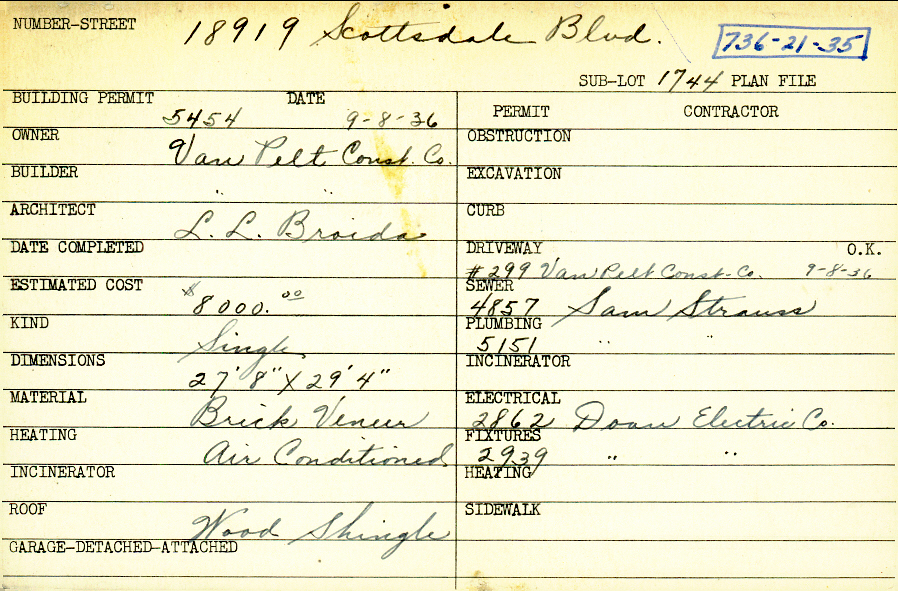 NUMBER-STREET 18919 Scottsdale Blvd. 736-21-35
SUB-LOT 1744 PLAN FILE
BUILDING PERMIT 5454 DATE 9-8-36
OWNER Van Pelt Const. Co.
BUILDER " "
ARCHITECT L. L. Broida
DATE COMPLETED
ESTIMATED COST $8000.00
KIND Single
DIMENSIONS 27'8" X 29'4"
MATERIAL Brick Veneer
HEATING Air Conditioned
INCINERATOR
ROOF Wood Shingle
GARAGE-DETACHED-ATTACHED
PERMIT CONTRACTOR
OBSTRUCTION
EXCAVATION
CURB
DRIVEWAY O.K.
#299 Van Pelt Const. Co. 9-8-36
SEWER
4857 Sam Strauss
PLUMBING
5151 " "
INCINERATOR
ELECTRICAL
2862 Doan Electric Co.
FIXTURES
2939 " "
HEATING
SIDEWALK